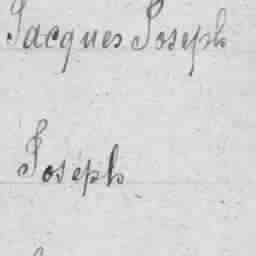 Jacques Joseph
Joseph